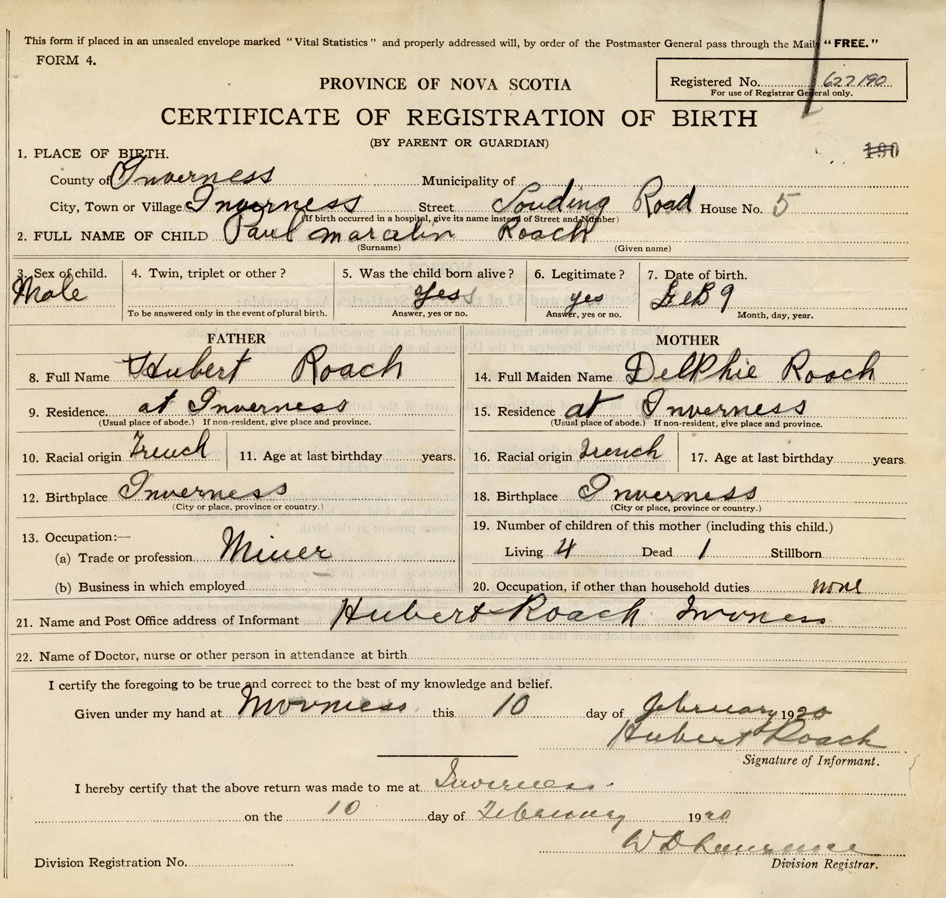 This form if placed in an unsealed envelope marked "Vital Statistics" and properly addressed will, by order of the Postmaster General pass through the Mails "FREE."
FORM 4.
PROVINCE OF NOVA SCOTIA
Registered No. 627190
For use of Registrar General only.
CERTIFICATE OF REGISTRATION OF BIRTH
(BY PARENT OR GUARDIAN)
190
1. PLACE OF BIRTH.
County of Inverness Municipality of
City, Town or Village Inverness Street Louding Road House No. 5
(If birth occurred in a hospital, give its name instead of Street and Number)
2. FULL NAME OF CHILD Paul marcelin Roach
(Surname) (Given name)
3. Sex of child. 4. Twin, triplet or other? 5. Was the child born alive? 6. Legitimate? 7. Date of birth.
Male yes yes FeB 9
To be answered only in the event of plural birth. Answer, yes or no. Answer, yes or no. Month, day, year.
FATHER MOTHER
8. Full Name Hubert Roach 14. Full Maiden Name DelPhie Roach
9. Residence. at Inverness 15. Residence at Inverness
(Usual place of abode.) If non-resident, give place and province. (Usual place of abode.) If non-resident, give place and province.
10. Racial origin French 11. Age at last birthday years. 16. Racial origin French 17. Age at last birthday years.
12. Birthplace Inverness 18. Birthplace Inverness
(City or place, province or country.) (City or place, province or country.)
13. Occupation:— 19. Number of children of this mother (including this child.)
(a) Trade or profession Miner Living 4 Dead 1 Stillborn
(b) Business in which employed 20. Occupation, if other than household duties none
21. Name and Post Office address of Informant Hubert Roach Invoness
22. Name of Doctor, nurse or other person in attendance at birth
I certify the foregoing to be true and correct to the best of my knowledge and belief.
Given under my hand at this 10 day of february 1920
Hubert Roach
Signature of Informant.
I hereby certify that the above return was made to me at Inverness.
on the 10 day of February 1920
W D Lawrence
Division Registration No. Division Registrar.